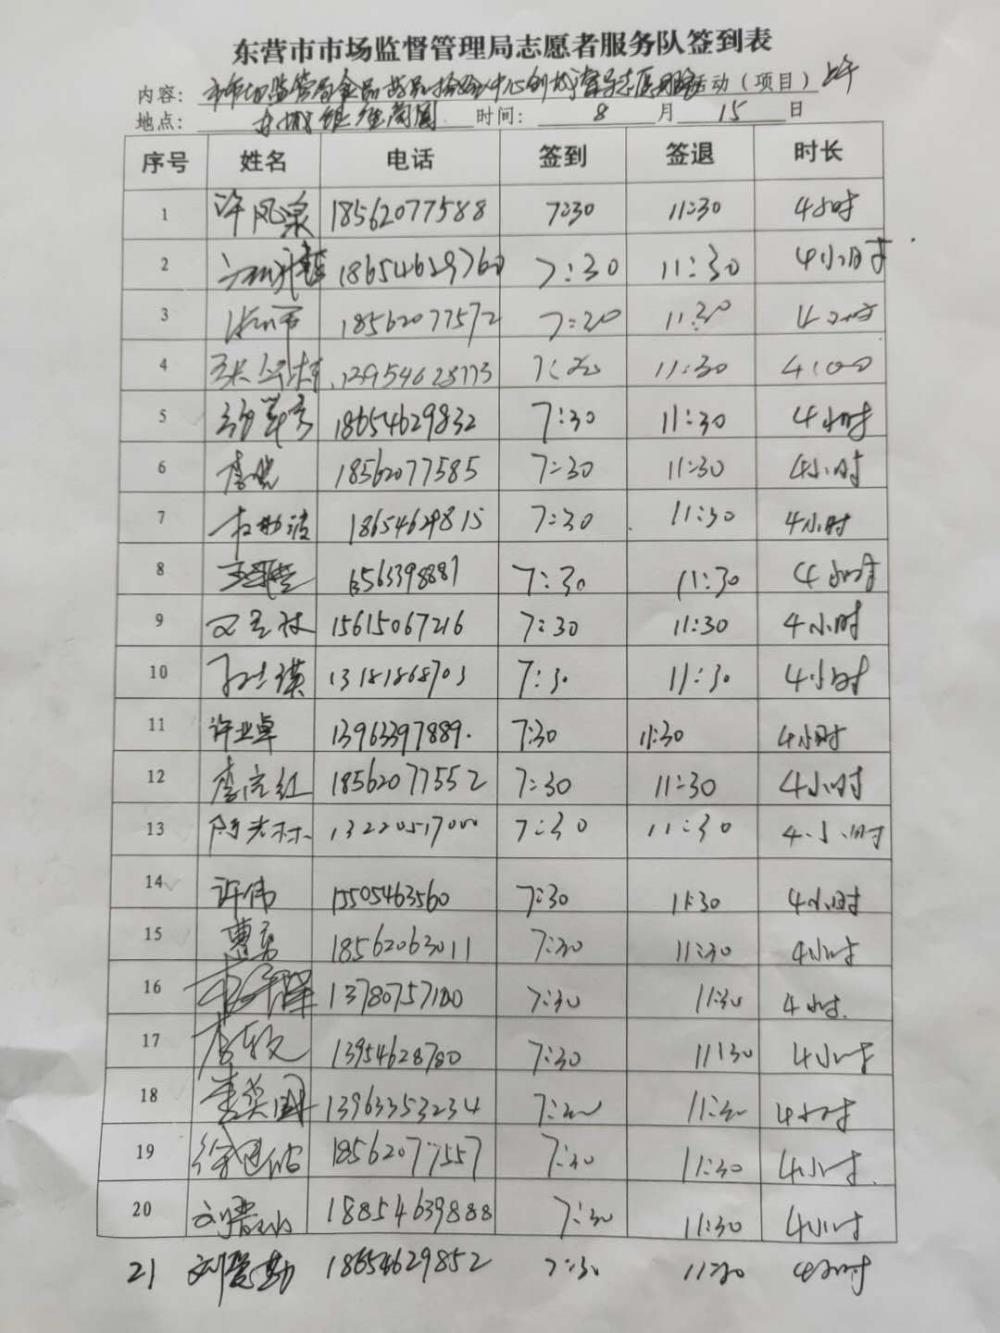 东营市市场监督管理局志愿者服务队签到表
内容：市市场监管局食品药品检验中心创城督导志愿服务活动（项目）上午
地点： 时间：8月15日
序号 姓名 电话 签到 签退 时长
1 许凤泉 18562077588 7:30 11:30 4小时
2 18654629760 7:30 11:30 4小时
3 18562077572 7:30 11:30 4小时
4 11:30
5 18654629832 7:30 11:30 4小时
6 李晓 18562077585 7:30 11:30 4小时
7 18654629815 7:30 11:30 4小时
8 7:30 11:30 4小时
9 15615067216 7:30 11:30 4小时
10 13181868703 7:30 11:30 4小时
11 许业卓 13963397889. 7:30 11:30 4小时
12 18562077552 7:30 11:30 4小时
13 13220517000 7:30 11:30 4小时
14 许伟 15505463560 7:30 11:30 4小时
15 曹芳 18562063011 7:30 11:30 4小时
16 13780757100 7:30 11:30 4小时.
17 李牧 13954628780 7:30 11:30 4小时
18 李奖国 13963353234 7:30 11:30 4小时
19 18562077557 7:30 11:30 4小时.
20 18854639888 7:30 11:30 4小时
21 刘爱勤 18654629852 7:30 11:30 4小时